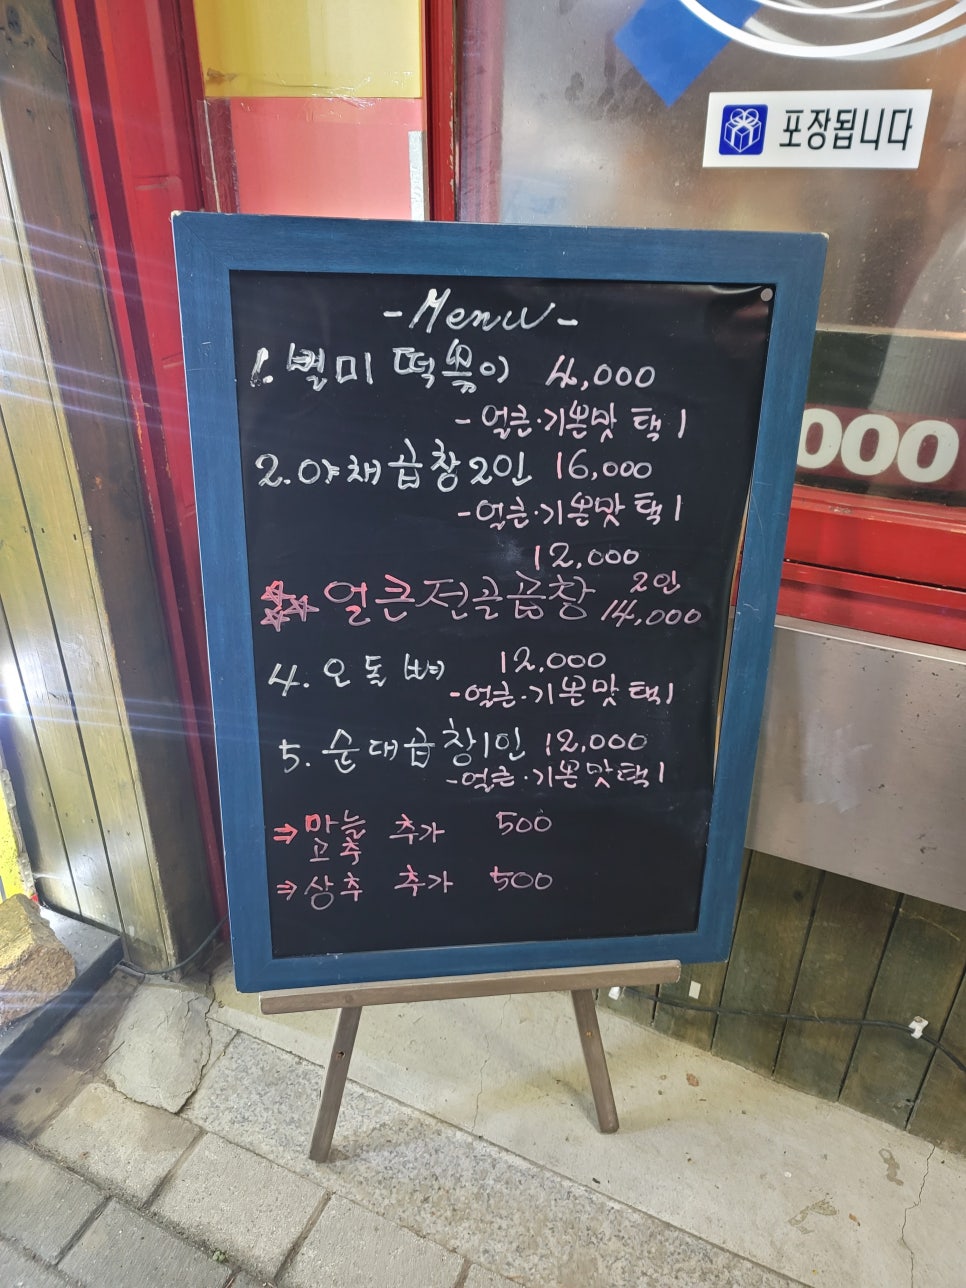 포장됩니다
-Menu-
1. 별미 떡볶이 4,000
-얼큰·기본맛 택1
2. 야채곱창2인 16,000
-얼큰·기본맛 택1
12,000
얼큰전골곱창 2인 14,000
4. 오돌뼈 12,000
-얼큰·기본맛 택1
5. 순대곱창1인 12,000
-얼큰·기본맛택1
⇒ 마늘 추가 500
고추
⇒ 상추 추가 500
000